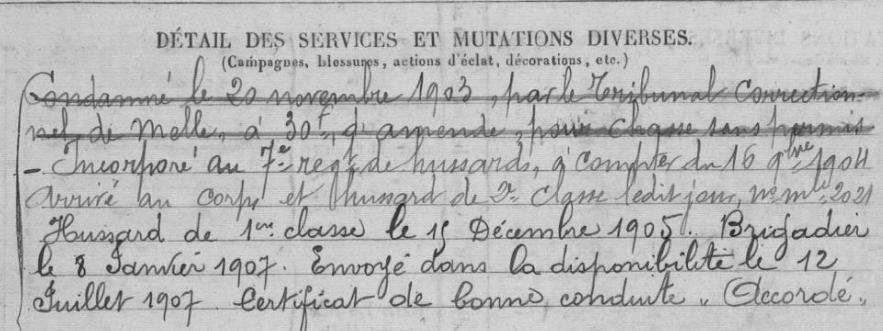 DÉTAIL DES SERVICES ET MUTATIONS DIVERSES.
(Campagnes, blessures, actions d'éclat, décorations, etc.)
Condamné le 20 novembre 1903, par le Tribunal Correction-
nel de Melle, à 30f d'amende, pour chasse sans permis
- Incorporé au 7e régt de hussards, à compter du 16 9bre 1904
Arrivé au corps et hussard de 2e classe ledit jour, no mle 2021
Hussard de 1re classe le 15 Décembre 1905. Brigadier
le 8 Janvier 1907. Envoyé dans la disponibilité le 12
Juillet 1907. Certificat de bonne conduite "Accordé"